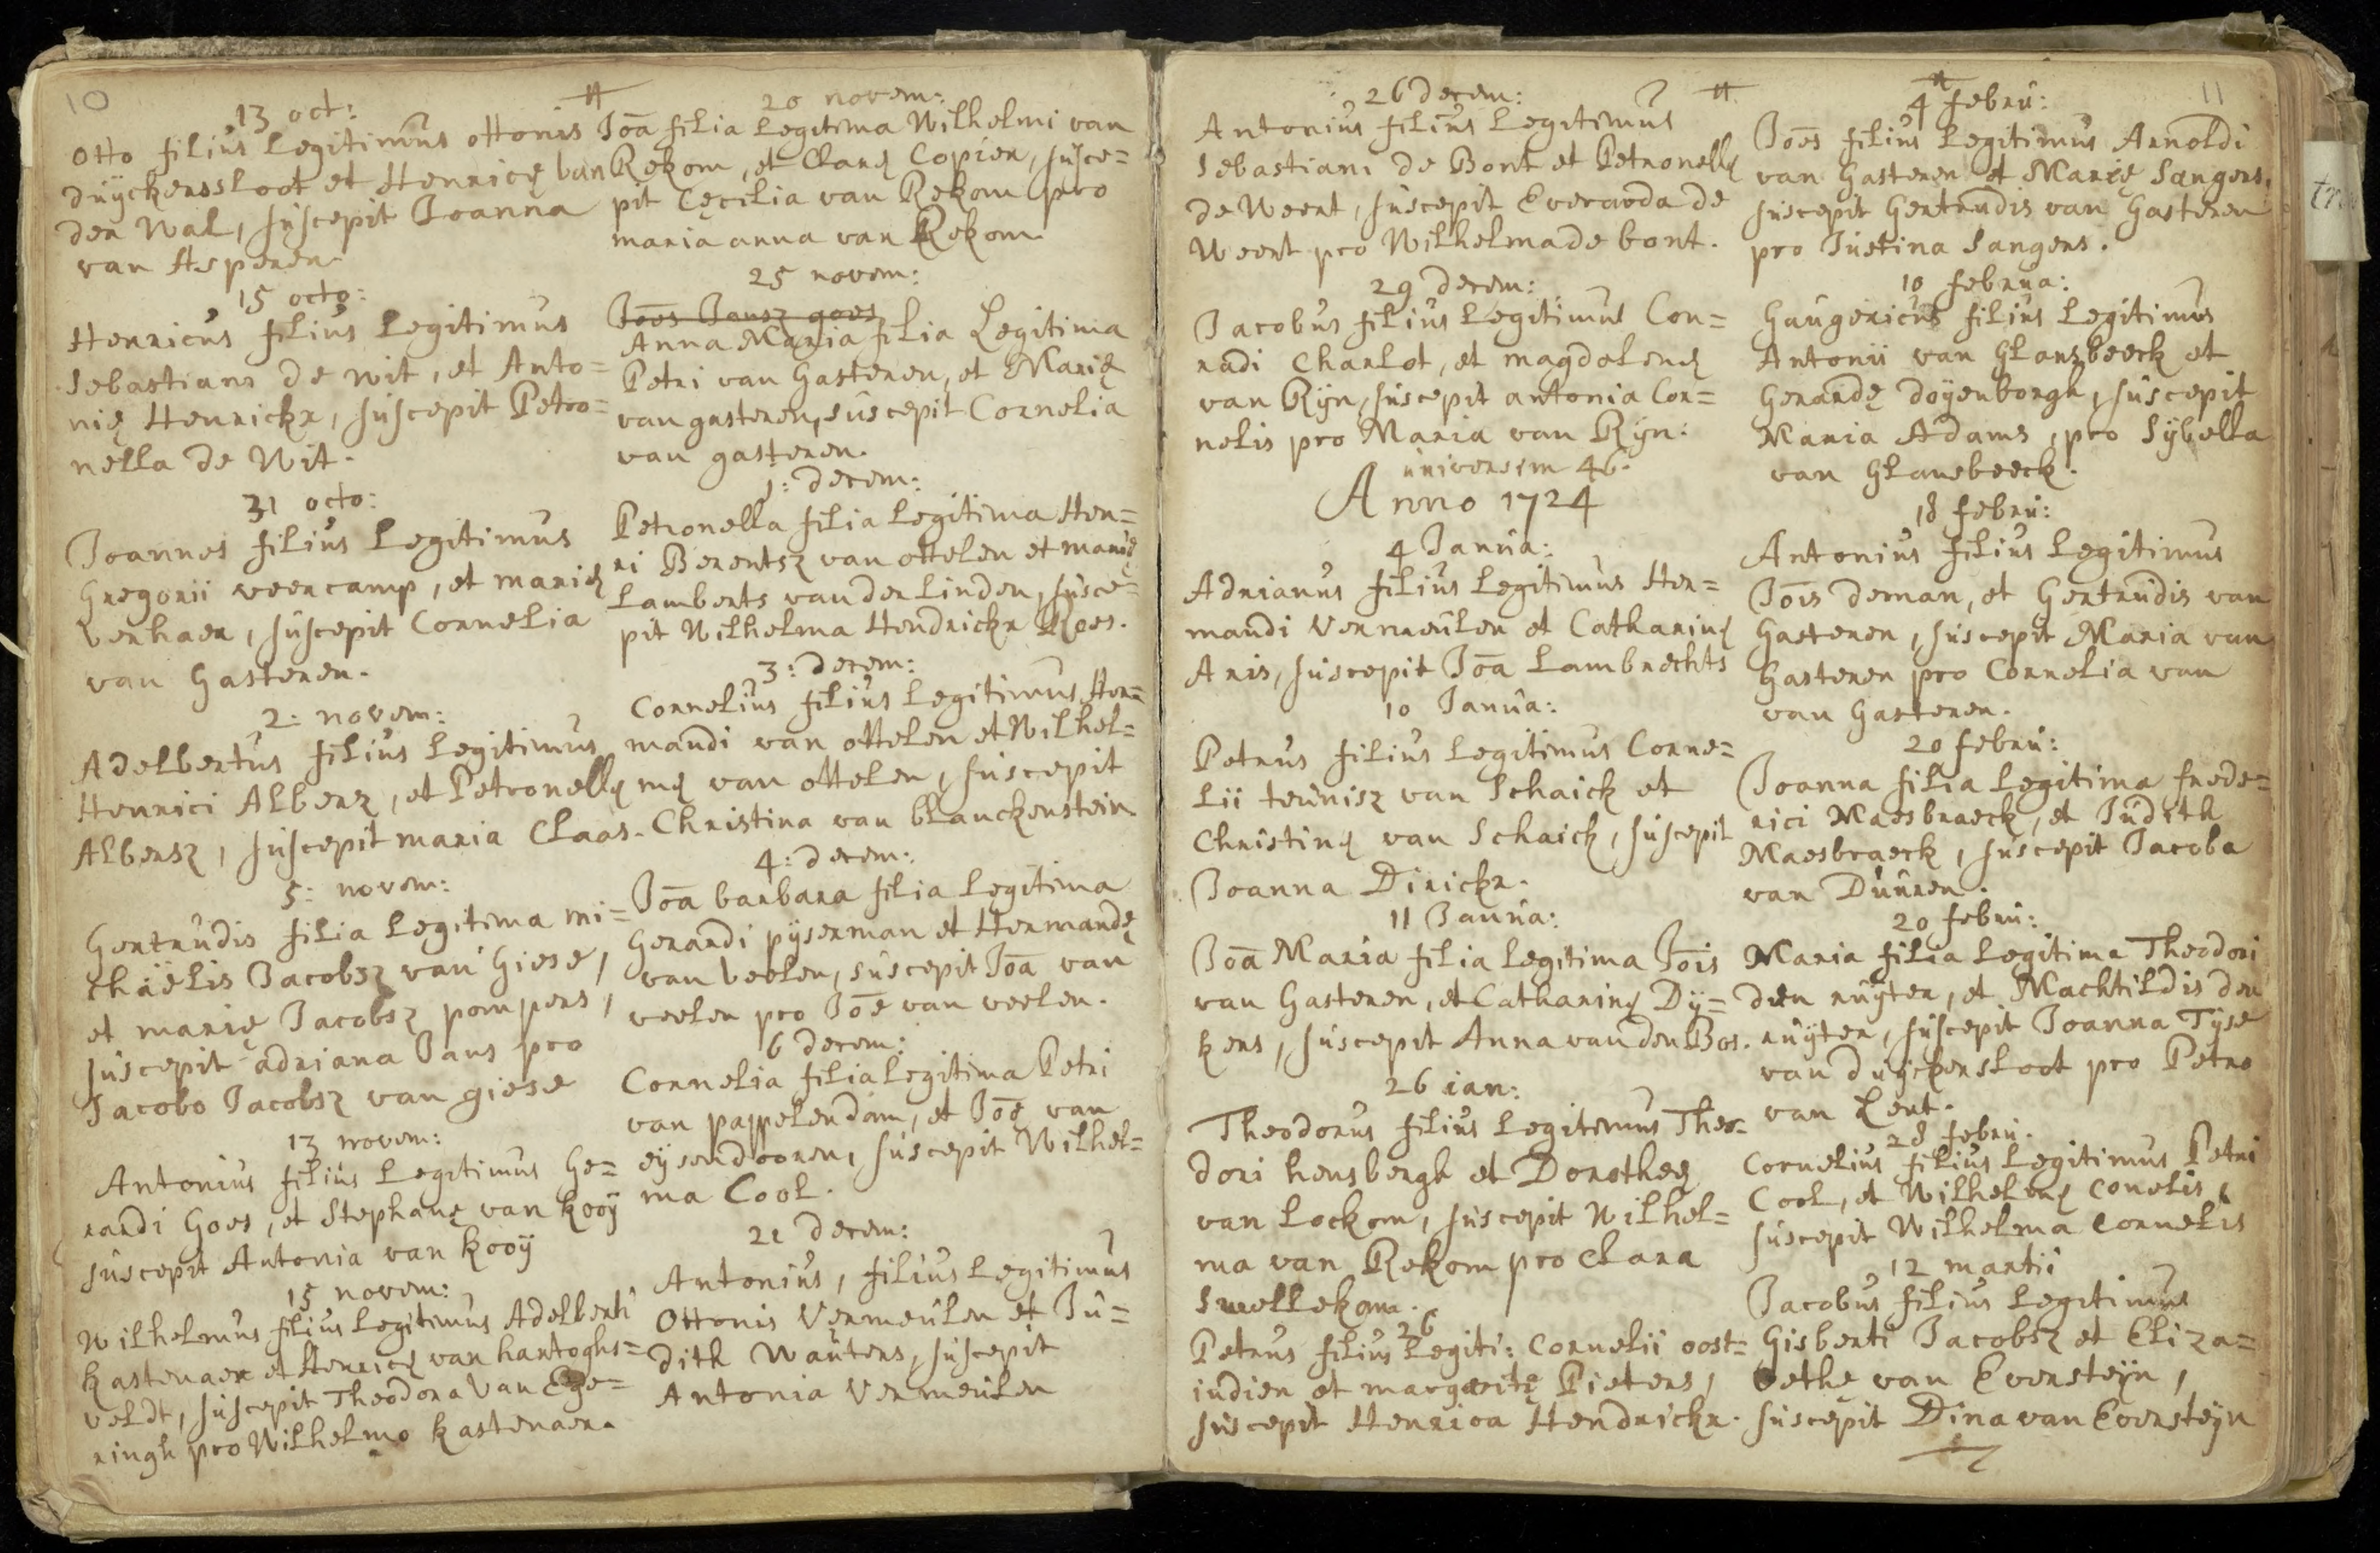 10
13 oct:
Otto filius Legitimus ottonis
duÿckerssloot et Henricę van
der Wal, suscepit Joanna
van Asperen.
15 octo:
Henricus filius Legitimus
Sebastiani de wit, et Anto=
nię Henrickx, suscepit Petro=
nella de Wit.
31 octo:
Joannes filius Legitimus
Gregorii veercamp, et marię
verhaer, suscepit Cornelia
van Gasteren.
2: novem:
Adelbertus filius Legitimus
Henrici Alberz, et Petronellę
Albersz, suscepit maria Claas.
5: novem:
Gertrudis filia Legitima mi=
chaëlis Jacobsz van Giese,
et marię Jacobsz pompers,
suscepit adriana Jans pro
Jacobo Jacobsz van giese
13 novem:
Antonius filius Legitimus Ge=
rardi Goes, et Stephanę van kooÿ
suscepit Antonia van kooÿ
15 novem:
Wilhelmus filius Legitimus Adelberti
kastenaer et Henricę van hartoghs=
veldt, suscepit Theodora van Ege=
ringh pro Wilhelmo kastenaer.
20 novem:
Joā filia Legitima Wilhelmi van
Rekom, et Clarę Copier, susce=
pit Cęcilia van Rekom pro
maria anna van Rekom.
25 novem:
Joēs Jansz goes
Anna Maria filia Legitima
Petri van Gasteren, et Marię
van gasteren, suscepit Cornelia
van gasteren.
1: decem:
Petronella filia Legitima Hen=
ri Berentsz van ottelen et marię
Lamberts van der Linden, susce=
pit Wilhelma Hendrickx Roes.
3: decem:
Cornelius filius Legitimus Her=
mandi van ottelen et Wilhel=
mę van ottelen, suscepit
Christina van blanckenstein
4: decem:
Joā barbara filia Legitima
Gerardi pÿserman et Hermandę
van veelen, suscepit Joā van
veelen pro Joē van veelen.
6 decem:
Cornelia filia Legitima Petri
van pappelendam, et Joę van
eÿsendooren, suscepit Wilhel=
ma Cool.
21 decem:
Antonius, filius Legitimus
Ottonis Vermeulen et Ju=
dith Wauters, suscepit
Antonia Vermeulen
26 decem:
Antonius filius Legitimus
Sebastiani de Bont et Petronellę
de Weert, suscepit Everarda de
Weert pro Wilhelma de bont.
29 decem:
Jacobus filius Legitimus Con=
radi Charlot, et magdolenę
van Rÿn, suscepit antonia Cor=
nelis pro Maria van Rÿn:
universim 46.
Anno 1724
4 Janua:
Adrianus filius Legitimus Her=
mandi Vermeulen et Catharinę
Aris, suscepit Joā Lambrechts
10 Janua:
Petrus filius Legitimus Corne=
lii teunisz van Schaick et
Christinę van Schaick, suscepit
Joanna Dirickx.
11 Janua:
Joā Maria filia Legitima Jōis
van Gasteren, et Catharinę Dÿ=
kers, suscepit Anna van den Bos.
26 ian:
Theodorus filius Legitimus Theo=
dori hensbergh et Dorotheę
van Lockom, suscepit Wilhel=
ma van Rekom pro Clara
Swellekom.
26
Petrus filius Legiti: Cornelii oost=
indien et margaritę Pieters,
suscepit Henrica Hendrickx.
11
4 febru:
Joēs filius Legitimus Arnoldi
van Gasteren et Marię Sangers,
suscepit Gertrudis van Gasteren
pro Justina Sangers.
10 februa:
Gaugericus filius Legitimus
Antonii van Glanzbeeck et
Gerardę doÿenborgh, suscepit
Maria Adams, pro Sÿbella
van Glansbeeck.
18 febru:
Antonius filius Legitimus
Jōis deman, et Gertrudis van
Gasteren, suscepit Maria van
Gasteren pro Cornelia van
van Gasteren.
20 febru:
Joanna filia Legitima frede=
rici Maesbraeck, et Judith
Maesbraeck, suscepit Jacoba
van Duuren.
20 febru:
Maria filia Legitima Theodori
den ruÿter, et Machtildis den
ruÿter, suscepit Joanna Tÿse
van duÿckersloot pro Petro
van Lent.
28 febru.
Cornelius filius Legitimus Petri
Cool, et Wilhelmę Conelis,
suscepit Wilhelma Cornelis
12 martii
Jacobus filius Legitimus
Gisberti Jacobsz et Eliza=
bethę van Eversteÿn,
suscepit Dina van Eversteÿn